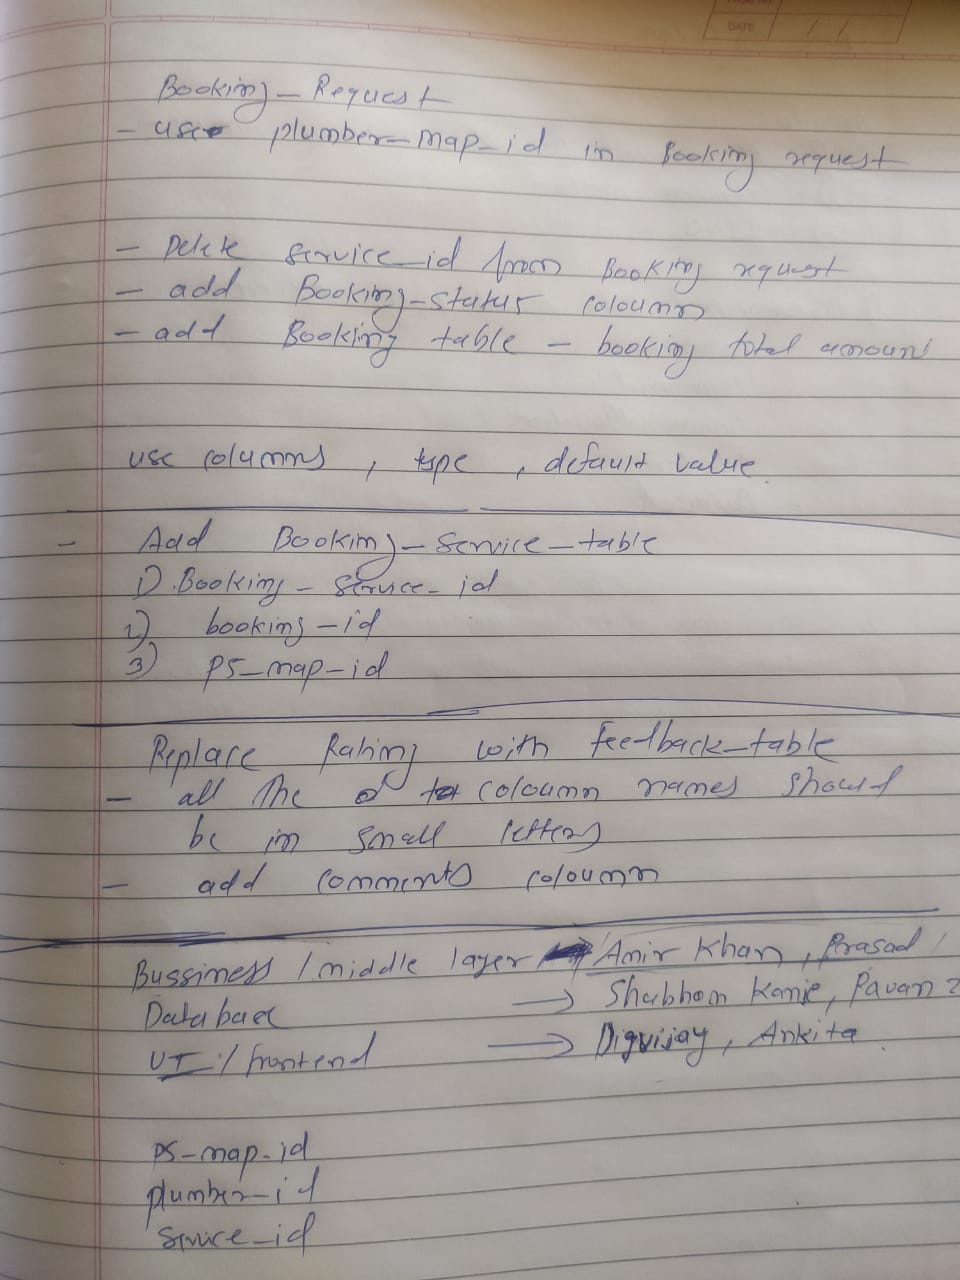 DATE / /
Booking_Request
- use plumber_map_id in Booking request
- Delete service_id from Booking request
- add Booking_status coloumn
- add Booking table - booking total amount
use columns , type , default value.
- Add Booking_Service_table
1) Booking_Service_id
2) booking_id
3) PS_map_id
Replace Rating with feedback_table
- all the coloumn names should
be in small letters
- add comments coloumn
Bussiness / middle layer → Amir Khan, Prasad
→ Shubham, Pavan
UI / frontend → Digvijay, Ankita.
PS_map_id
plumber_id
Service_id